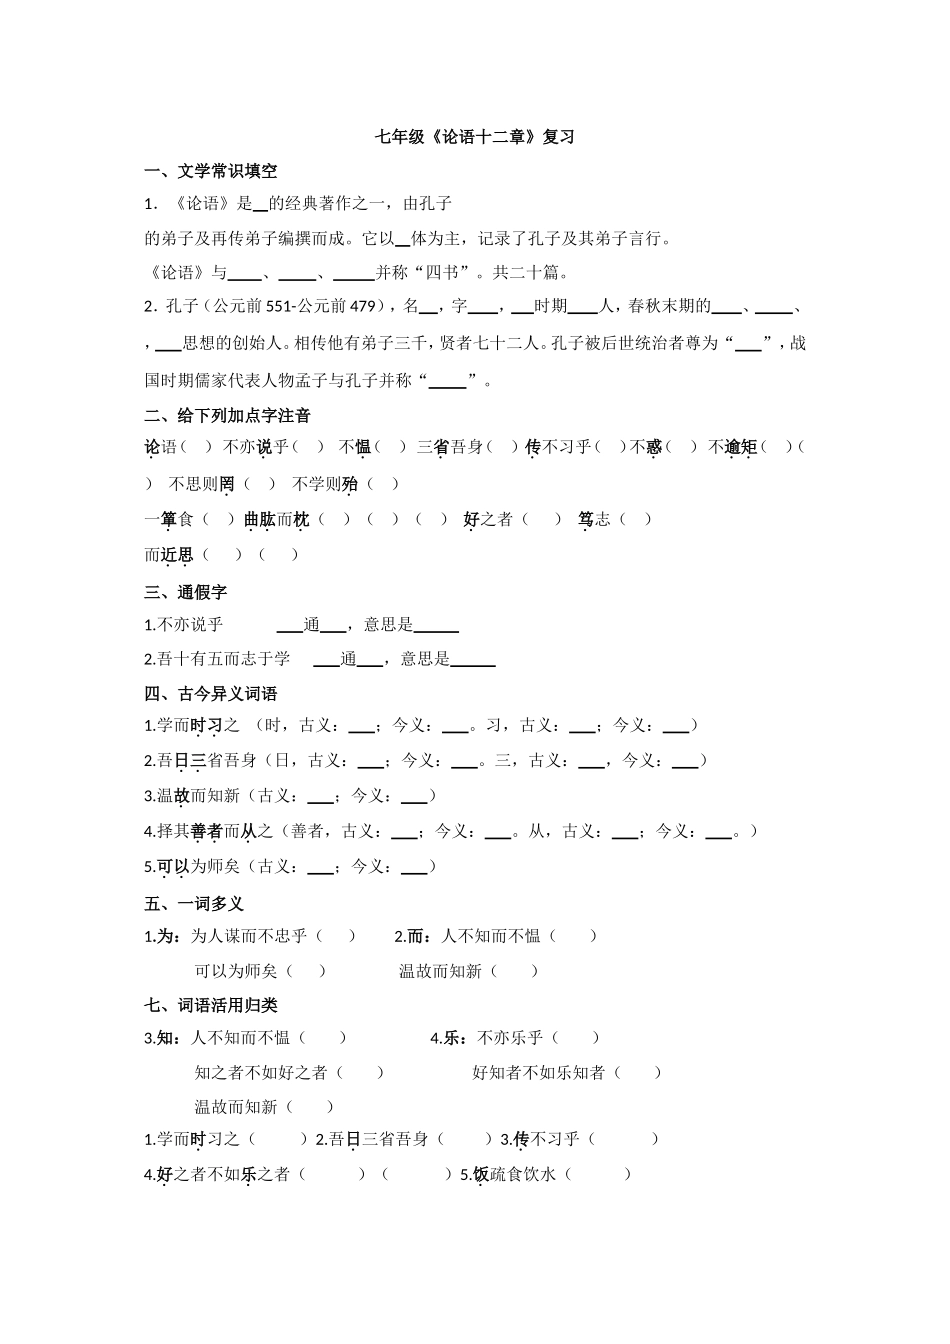 七年级《论语十二章》复习
一、文学常识填空
1．《论语》是__的经典著作之一，由孔子
的弟子及再传弟子编撰而成。它以__体为主，记录了孔子及其弟子言行。
《论语》与____、____、_____并称“四书”。共二十篇。
2．孔子（公元前 551-公元前 479），名__，字____，___时期____人，春秋末期的____、_____、
，___思想的创始人。相传他有弟子三千，贤者七十二人。孔子被后世统治者尊为“___”，战
国时期儒家代表人物孟子与孔子并称“_____”。
二、给下列加点字注音
论语（ ）不亦说乎（ ） 不愠（ ）三省吾身（ ）传不习乎（ ）不惑（ ）不逾矩（ ）（
） 不思则罔（ ） 不学则殆（ ）
一箪食（ ）曲肱而枕（ ）（ ）（ ） 好之者（ ） 笃志（ ）
而近思（ ）（ ）
三、通假字
1.不亦说乎 ___通___，意思是_____
2.吾十有五而志于学 ___通___，意思是_____
四、古今异义词语
1.学而时习之 （时，古义：___；今义：___。习，古义：___；今义：___）
2.吾日三省吾身（日，古义：___；今义：___。三，古义：___，今义：___）
3.温故而知新（古义：___；今义：___）
4.择其善者而从之（善者，古义：___；今义：___。从，古义：___；今义：___。）
5.可以为师矣（古义：___；今义：___）
五、一词多义
1.为：为人谋而不忠乎（ ） 2.而：人不知而不愠（ ）
可以为师矣（ ） 温故而知新（ ）
七、词语活用归类
3.知：人不知而不愠（ ） 4.乐：不亦乐乎（ ）
知之者不如好之者（ ） 好知者不如乐知者（ ）
温故而知新（ ）
1.学而时习之（ ）2.吾日三省吾身（ ）3.传不习乎（ ）
4.好之者不如乐之者（ ）（ ）5.饭疏食饮水（ ）